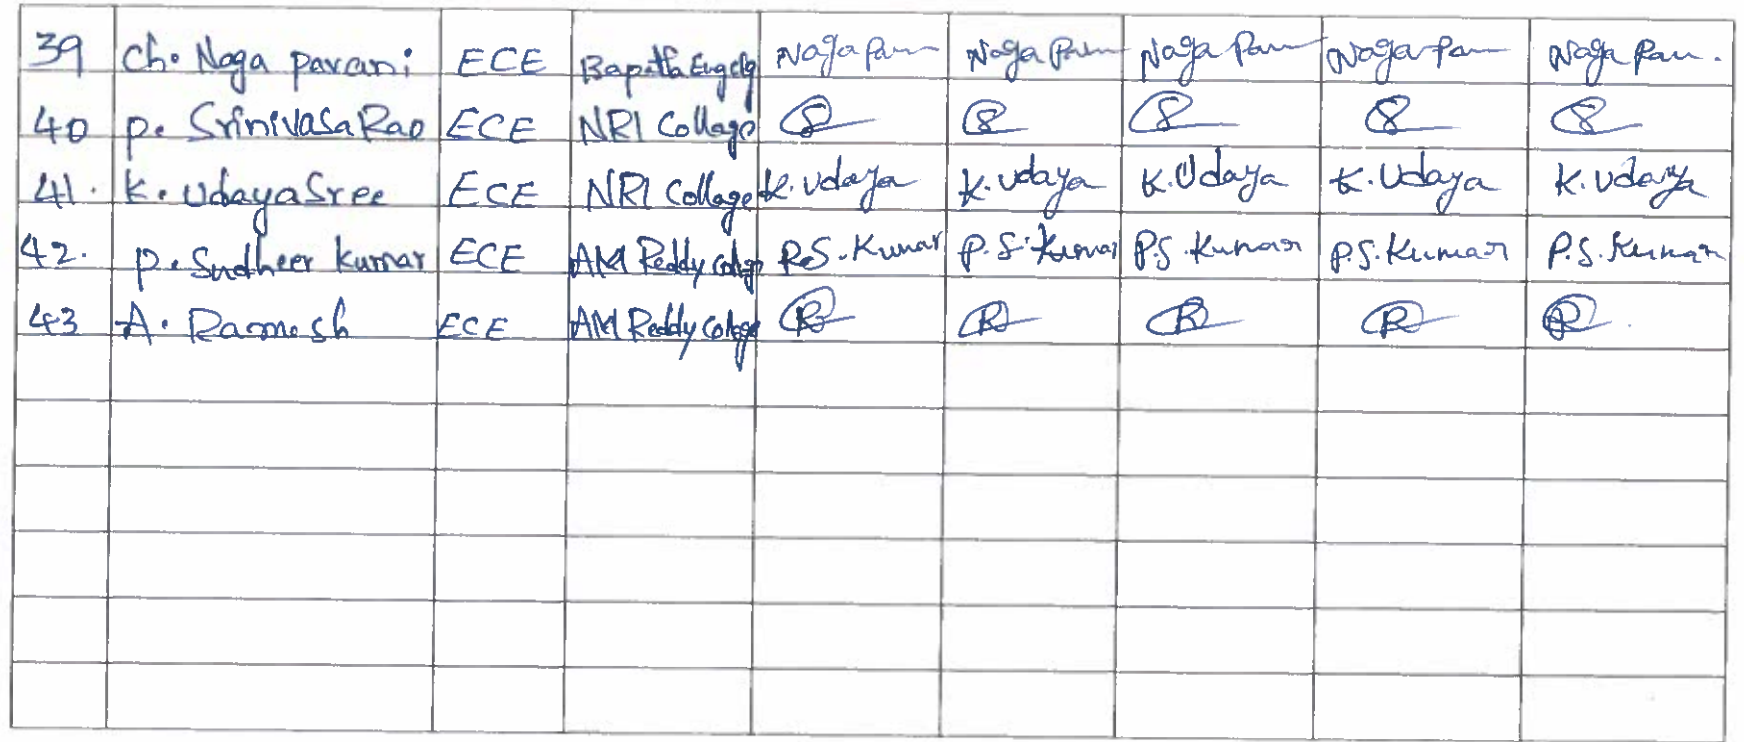 39 Ch. Naga pavani ECE Bapatla Eng clg Naga Pav Naga Pav Naga Pav Naga Pav Naga Pav.
40 P. Srinivasa Rao ECE NRI Collage
41. K. Udaya Sree ECE NRI Collage K. Udaya K. Udaya K. Udaya K. Udaya K. Udaya
42. P. Sudheer Kumar ECE AM Reddy College P.S. Kumar P.S. Kumar P.S. Kumar P.S. Kumar P.S. Kumar
43 A. Ramesh ECE AM Reddy College R R R R R